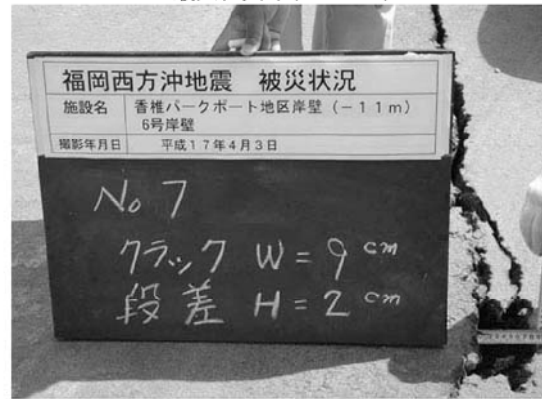 福岡西方沖地震 被災状況
施設名 香椎パークポート地区岸壁(-11m)
6号岸壁
撮影年月日 平成17年4月3日
No 7
クラック W=9cm
段差 H=2cm